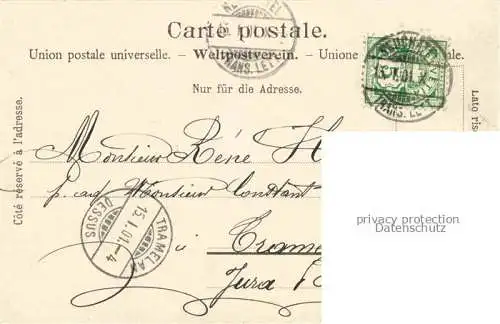 Carte postale.
Union postale universelle. — Weltpostverein. — Unione
Nur für die Adresse.
Côté réservé à l'adresse.
Lato ris
Monsieur René H
p. ad Monsieur Constant
à Trame
Jura
TRAMELAN
15.I.01.–4
DESSUS
TRANS. LET
privacy protection
Datenschutz